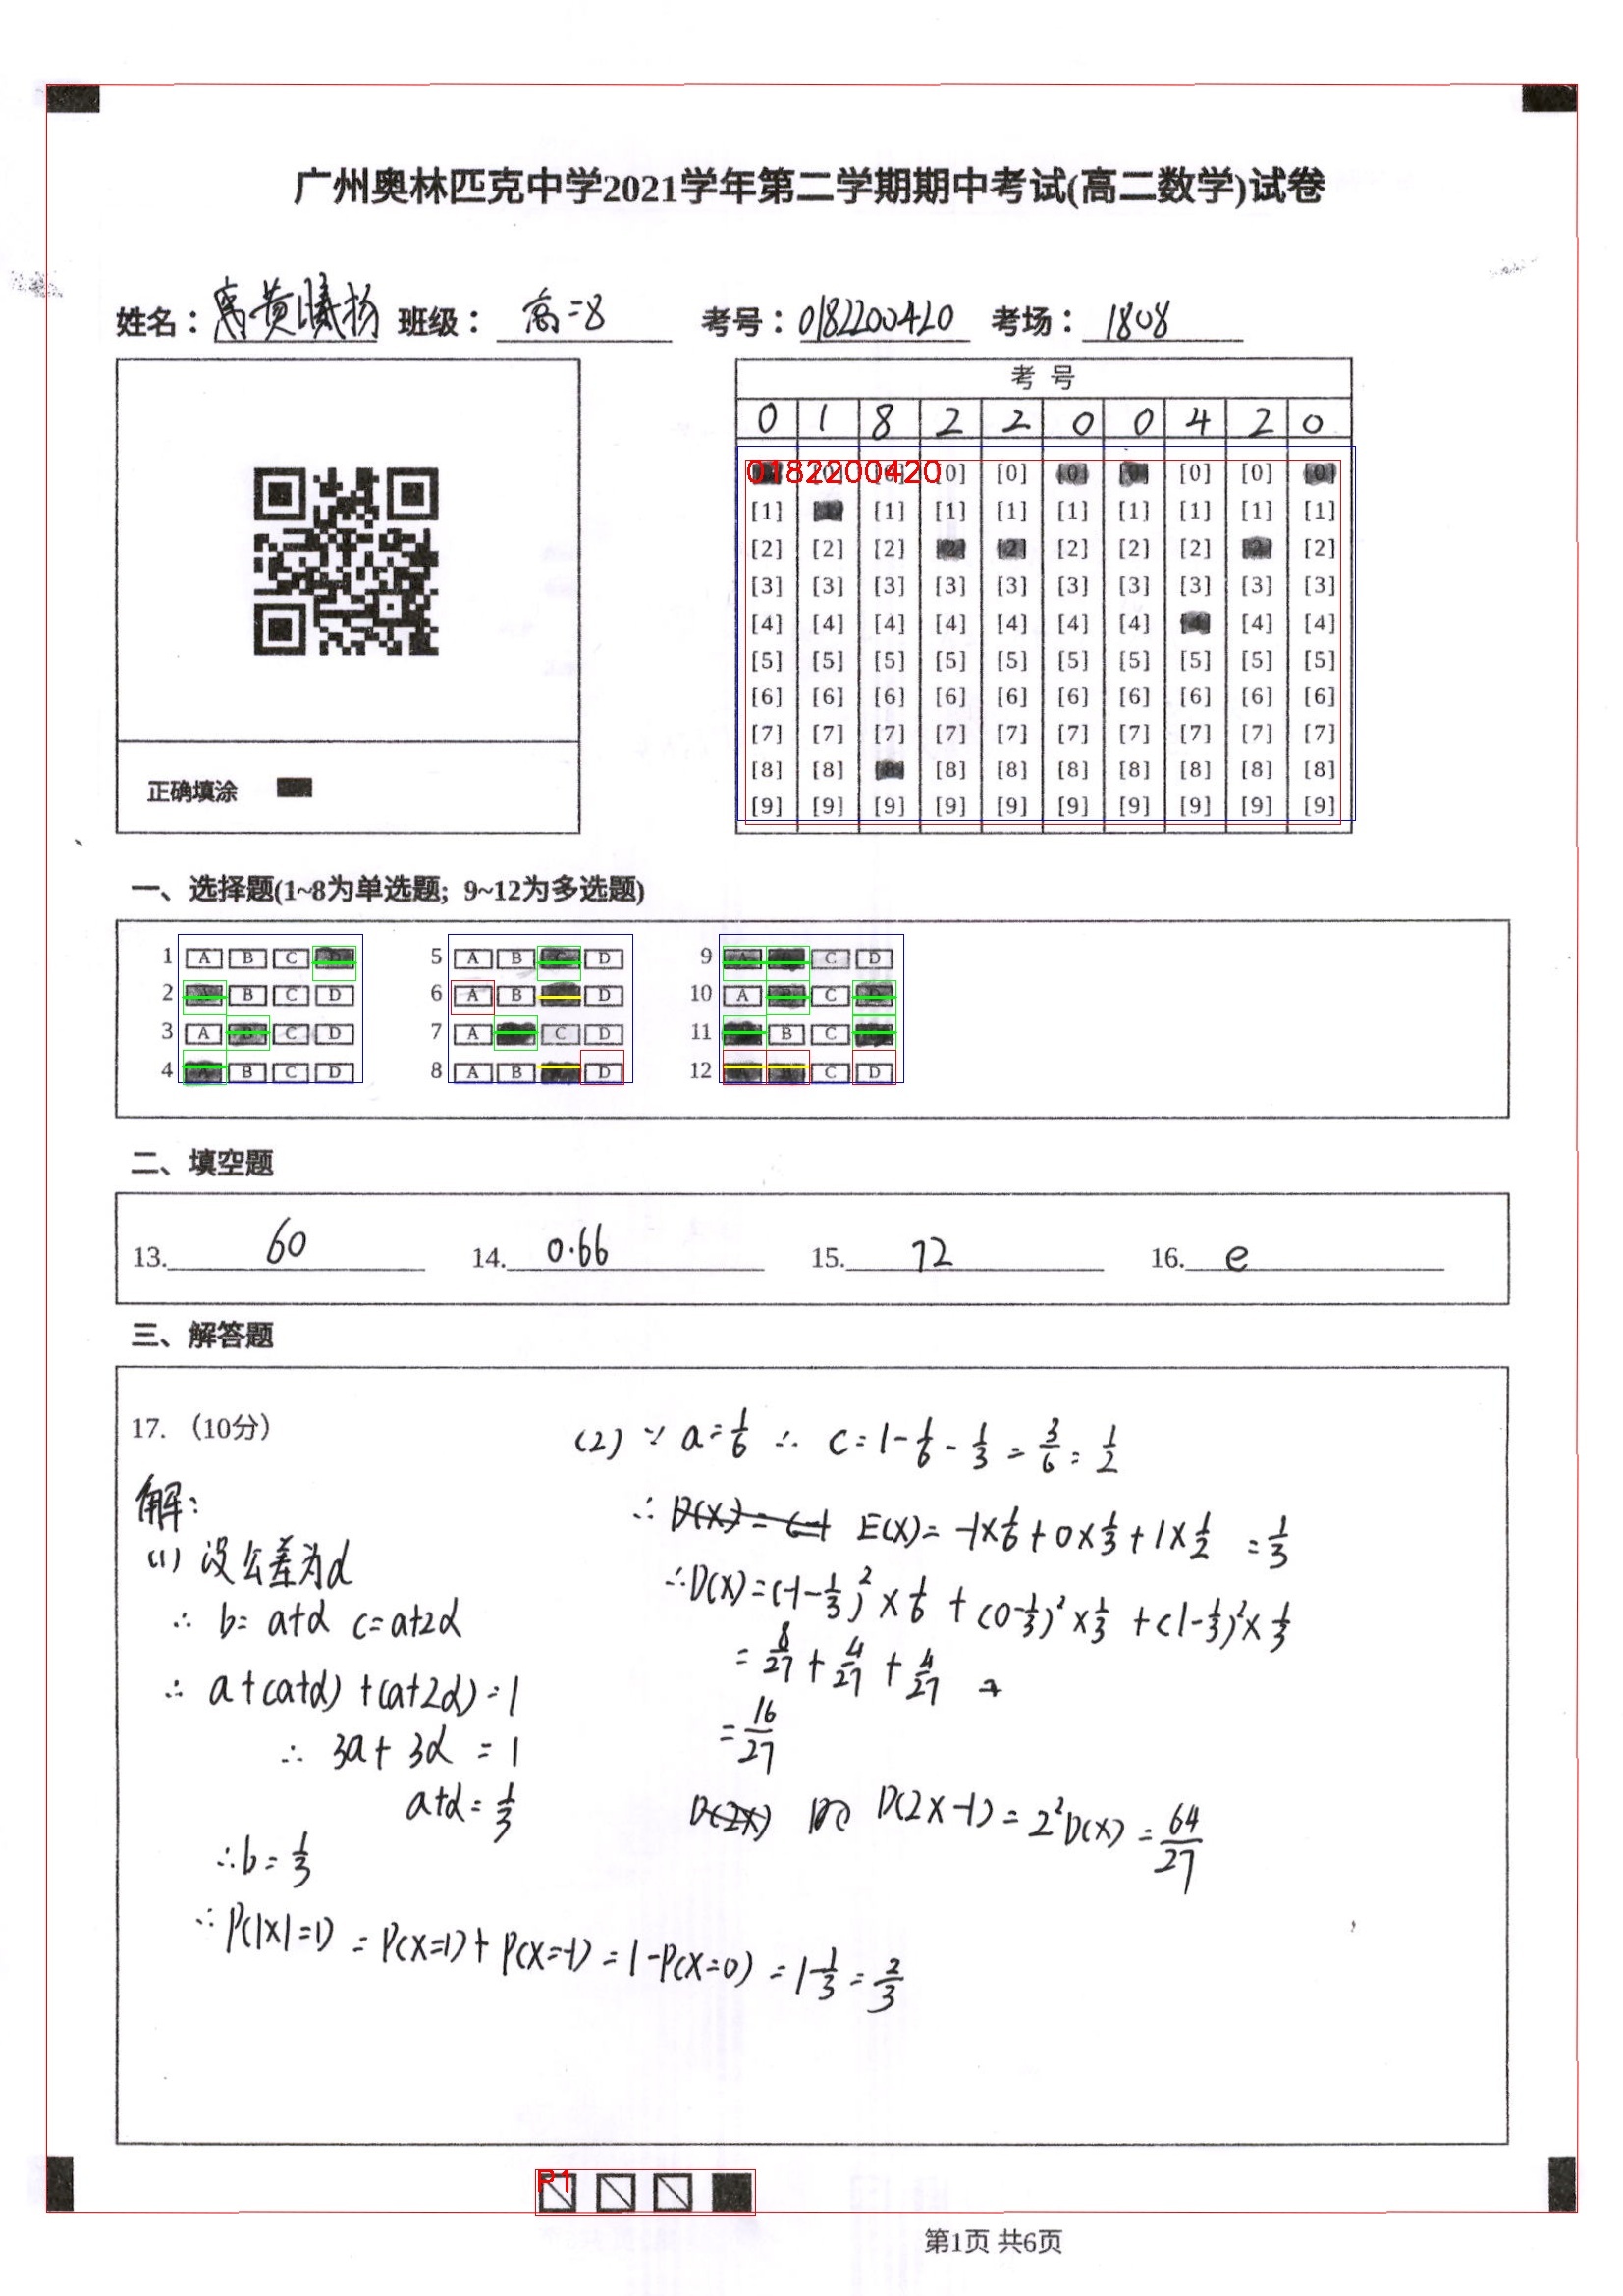 广州奥林匹克中学2021学年第二学期期中考试(高二数学)试卷
姓名： 黄曦扬 班级： 高二8 考号：0182200420 考场： 1808
考 号
0 1 8 2 2 0 0 4 2 0
0182200420
[0] [0] [0] [0] [0] [0] [0] [0] [0] [0]
[1] [1] [1] [1] [1] [1] [1] [1] [1] [1]
[2] [2] [2] [2] [2] [2] [2] [2] [2] [2]
[3] [3] [3] [3] [3] [3] [3] [3] [3] [3]
[4] [4] [4] [4] [4] [4] [4] [4] [4] [4]
[5] [5] [5] [5] [5] [5] [5] [5] [5] [5]
[6] [6] [6] [6] [6] [6] [6] [6] [6] [6]
[7] [7] [7] [7] [7] [7] [7] [7] [7] [7]
[8] [8] [8] [8] [8] [8] [8] [8] [8] [8]
[9] [9] [9] [9] [9] [9] [9] [9] [9] [9]
正确填涂
一、选择题(1~8为单选题; 9~12为多选题)
1 A B C D 5 A B C D 9 A B C D
2 A B C D 6 A B C D 10 A B C D
3 A B C D 7 A B C D 11 A B C D
4 A B C D 8 A B C D 12 A B C D
二、填空题
13. 60 14. 0.66 15. 72 16. e
三、解答题
17. （10分）
解：
(1) 设公差为d
∴ b=a+d c=a+2d
∴ a+(a+d)+(a+2d)=1
∴ 3a+3d=1
a+d=1/3
∴b=1/3
∴P(|X|=1)=P(X=1)+P(X=-1)=1-P(X=0)=1-1/3=2/3
(2) ∵ a=1/6 ∴ c=1-1/6-1/3=3/6=1/2
∴ E(X)=-1×1/6+0×1/3+1×1/2=1/3
∴D(X)=(-1-1/3)²×1/6+(0-1/3)²×1/3+(1-1/3)²×1/3
=8/27+4/27+4/27
=16/27
D(2X) D(2X-1)=2²D(X)=64/27
P1
第1页 共6页